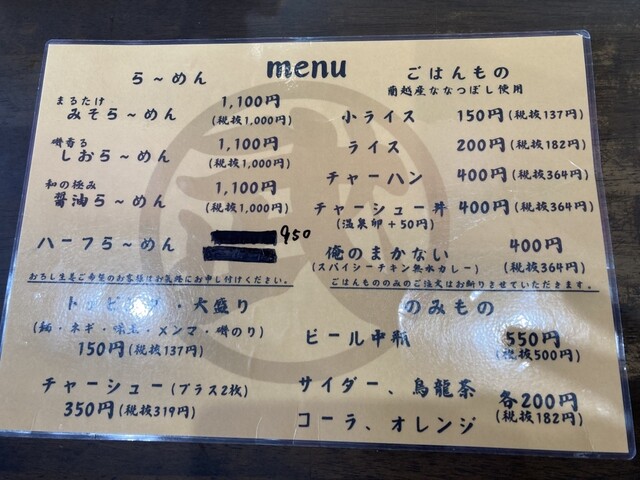 menu
ら～めん
まるたけ
みそら～めん
1,100円
(税抜1,000円)
磯香る
しおら～めん
1,100円
(税抜1,000円)
和の極み
醤油ら～めん
1,100円
(税抜1,000円)
ハーフら～めん
950
おろし生姜ご希望のお客様はお気軽にお申し付けください。
・大盛り
(麺・ネギ・味玉・メンマ・磯のり)
150円(税抜137円)
チャーシュー(プラス2枚)
350円(税抜319円)
ごはんもの
蘭越産ななつぼし使用
小ライス 150円(税抜137円)
ライス 200円(税抜182円)
チャーハン 400円(税抜364円)
チャーシュー丼 400円(税抜364円)
(温泉卵+50円)
俺のまかない 400円
(スパイシーチキン無水カレー) (税抜364円)
ごはんもののみのご注文はお断りさせていただきます。
のみもの
ビール中瓶 550円
(税抜500円)
サイダー、烏龍茶
コーラ、オレンジ
各200円
(税抜182円)